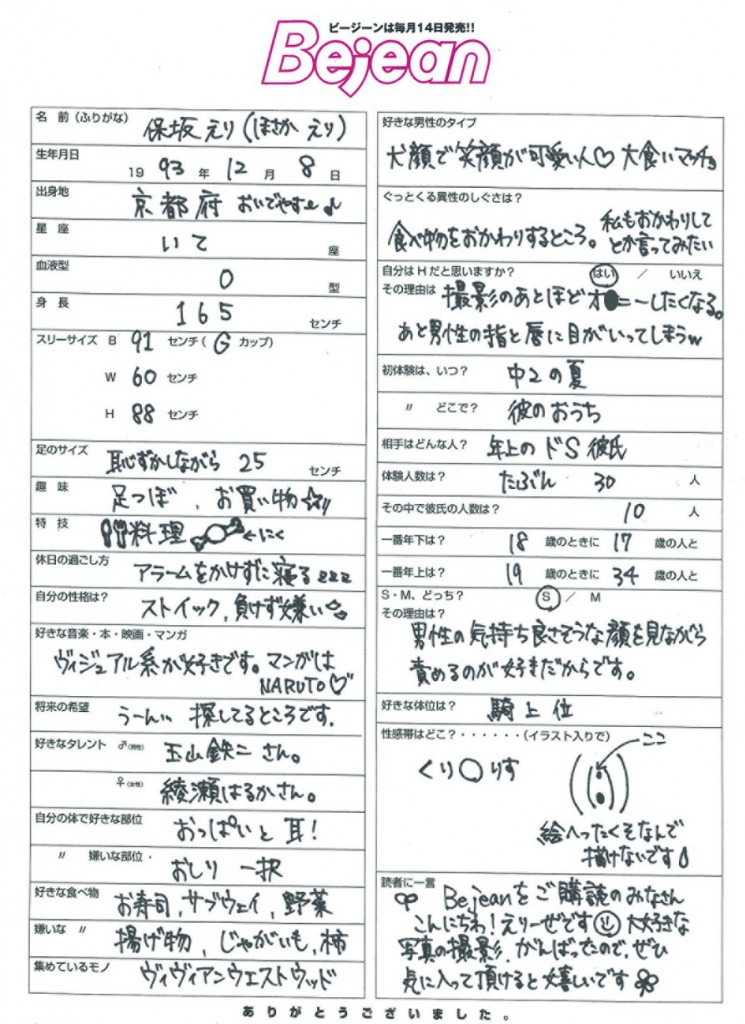 ビージーンは毎月14日発売!!
Bejean
名 前(ふりがな) 保坂 えり(ほさか えり)
生年月日 19 93 年 12 月 8 日
出身地 京都府 おいでやすー♪
星 座 いて 座
血液型 O 型
身 長 165 センチ
スリーサイズ B 91 センチ( G カップ)
W 60 センチ
H 88 センチ
足のサイズ 恥ずかしながら 25 センチ
趣 味 足つぼ、お買い物
特 技 料理 ←にく
休日の過ごし方 アラームをかけずに寝る zzz
自分の性格は? ストイック、負けず嫌い
好きな音楽・本・映画・マンガ
ヴィジュアル系が好きです。マンガは
NARUTO♡
将来の希望 うーん… 探してるところです。
好きなタレント ♂(男性) 玉山鉄二さん。
♀(女性) 綾瀬はるかさん。
自分の体で好きな部位 おっぱいと耳!
〃 嫌いな部位・ おしり 一択
好きな食べ物 お寿司、サブウェイ、野菜
嫌いな 〃 揚げ物、じゃがいも、柿
集めているモノ ヴィヴィアンウエストウッド
好きな男性のタイプ
犬顔で笑顔が可愛い人♡ 大食いマッチョ
ぐっとくる異性のしぐさは?
食べ物をおかわりするところ。私もおかわりして
とか言ってみたい
自分はHだと思いますか? はい / いいえ
その理由は 撮影のあとほどオ●ニーしたくなる。
あと男性の指と唇に目がいってしまうw
体験人数は? たぶん 30 人
その中で彼氏の人数は? 10 人
一番年上は? 19 歳のときに 34 歳の人と
S・M、どっち? S / M
その理由は?
男性の気持ち良さそうな顔を見ながら
責めるのが好きだからです。
好きな体位は? 騎上位
性感帯はどこ?・・・・・・(イラスト入りで) ここ
くり〇りす
絵へったくそなんで
描けないです
読者に一言
Bejeanをご購読のみなさん
こんにちわ!えりーぜです 大好きな
写真の撮影、がんばったので、ぜひ
気に入って頂けると嬉しいです
ありがとうございました。